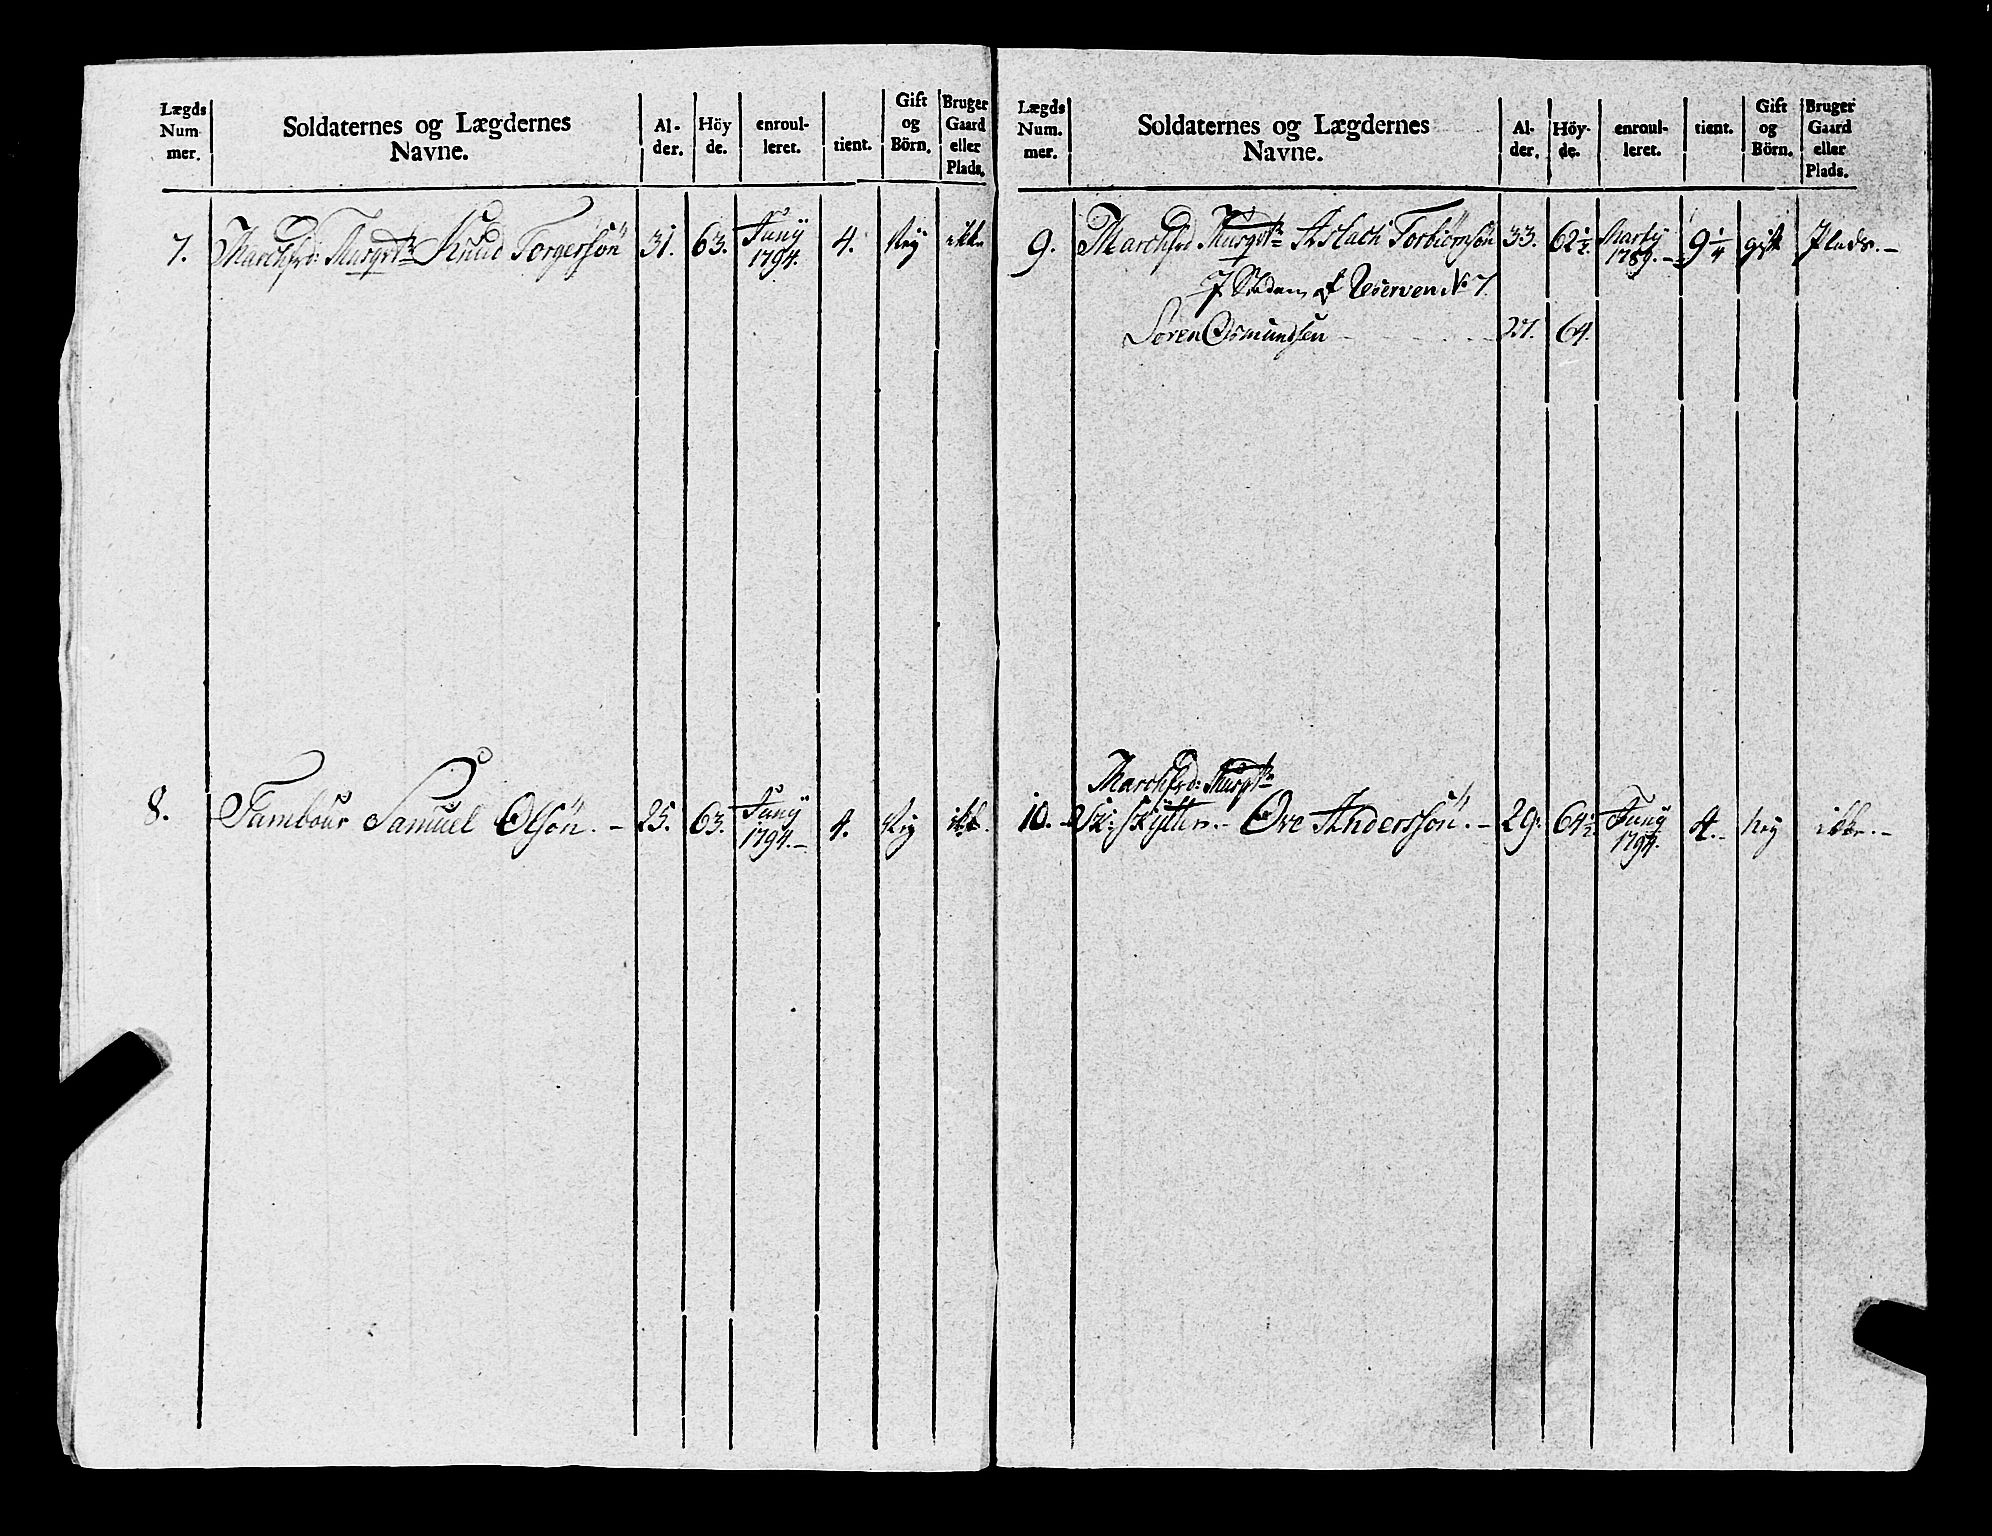 Lægds Num- mer. | Soldaternes og Lægdernes Navne. | Al- der. | Höy de. | enroul- leret. | tient. | Gift og Börn. | Bruger Gaard eller Plads.
7. Marchfrd: Musqvtr Knud Torgersön 31. 63. Juny 1794. 4. Ney ikke
8. Tambour Samuel Olsön. – 25. 63. Juny 1794. – 4. Ney ikke.
Lægds Num. mer. | Soldaternes og Lægdernes Navne. | Al- der. | Höy- de. | enroul- leret. | tient. | Gift og Börn. | Bruger Gaard eller Plads.
9. Marchfrd Musqvtr Aslach Torbiörnsön 33. 62½. Marty 1789. – 9¼ gift Plads. –
J Steden af Reserven No 7.
Sören Osmundsen 27. 64.
Marchfrd: Musqvtr
10. – Ski skÿtter. – Ove Anderssön. – 29. 64½ Juny 1794. 4. – Ney ikke. –